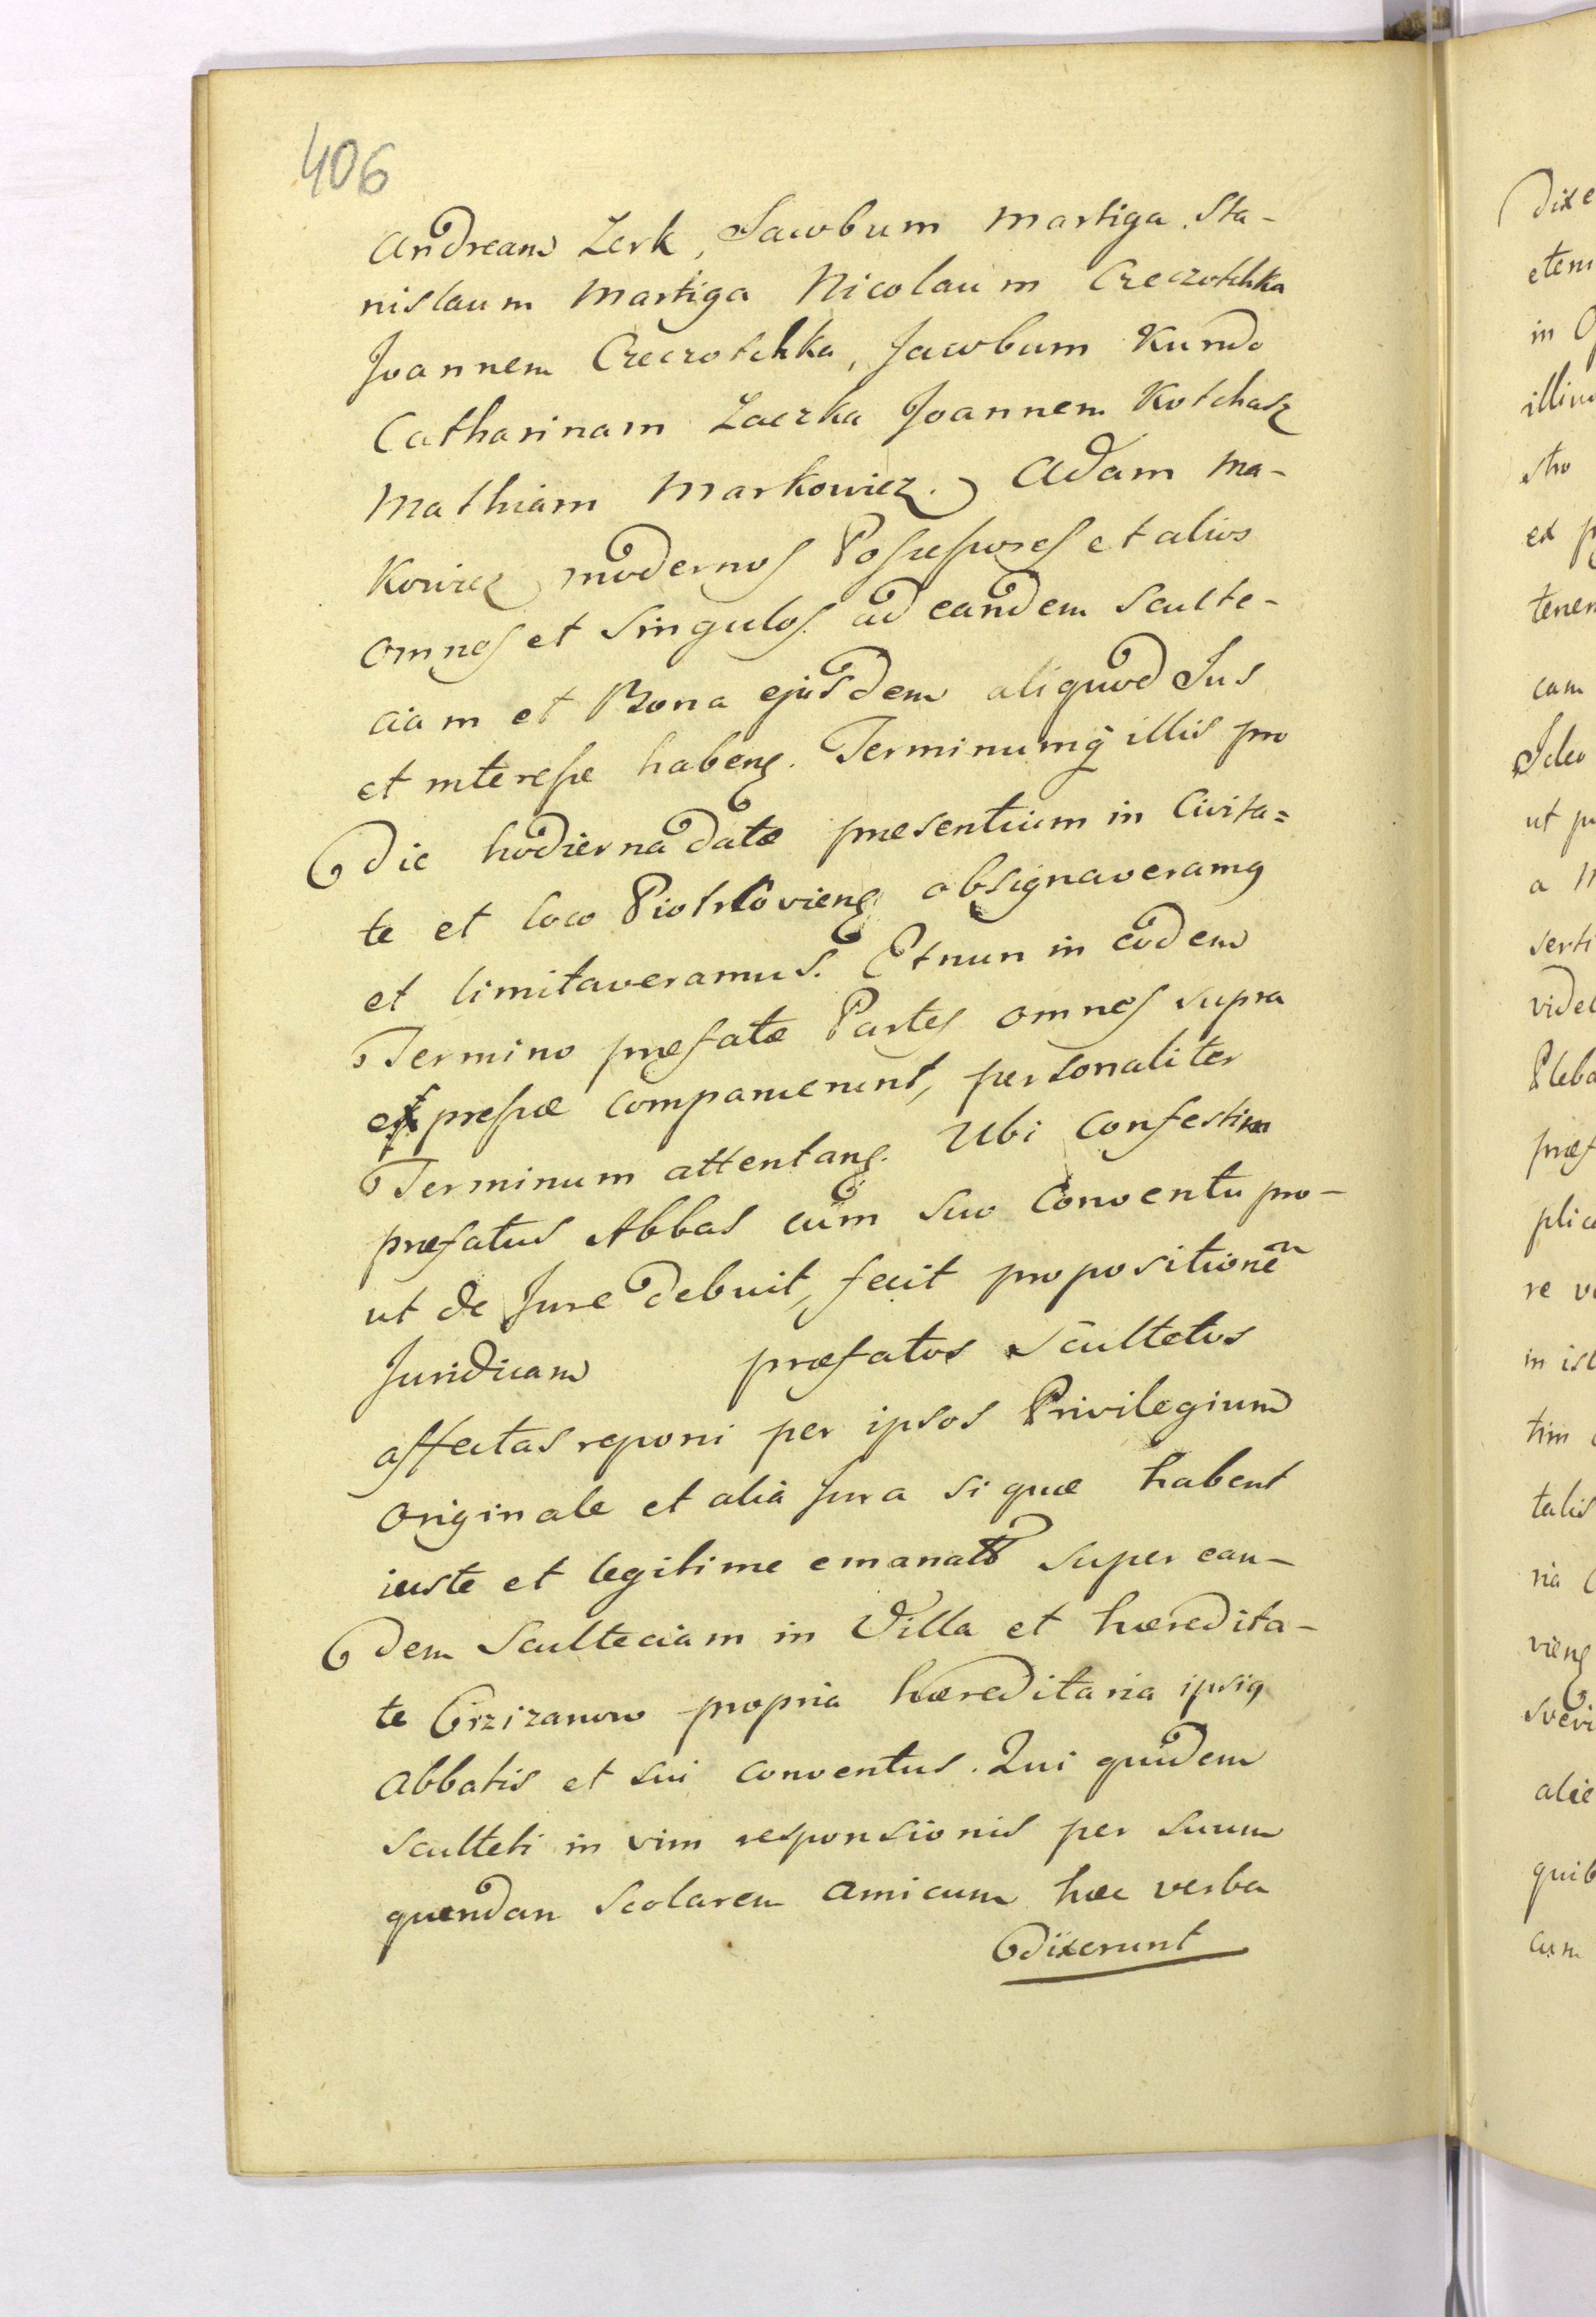 406
Andream Zerk, Jacobum Martiga Sta-
nislaum Martiga Nicolaum Creczotchka
Joannem Creczotchka, Jacobum Kundo
Catharinam Zaczka Joannem Kotchasz
Mathiam Markowicz. Adam Ma-
kowicz modernos Possessores et alios
omnes et singulos ad eandem Sculte-
ciam et Bona ejusdem aliquod Jus
et interesse habens. Terminumq illis pro
die hodierna data presentium in Civita=
te et loco Piotrkoviens obsignaveramq
et limitaveramus. Et nun in eodem
Termino præfatæ Partes omnes supra
expressæ comparuerunt, personaliter
Terminum attentans. Ubi confestim
præfatus Abbas cum suo Conventu pro-
ut de Jure debuit, fecit propositionem
Juridicam præfatos Scultetos
affectas reponi per ipsos Privilegium
originale et alia Jura si quæ habent
iuste et legitime emanata super ean-
dem Sculteciam in Villa et hæredita-
te Grzizanow propria hæreditaria ipsiq
Abbatis et sui conventus. Qui quidem
Sculteti in vim responsionis per suum
quendan Scolarem amicum hæc verba
dixerunt
dixe
etem
in
illiu
stro
ex p
tenen
cam
Ideo
ut pr
a
serti
videl
Pleba
præf
plica
re v
in ist
tim
talis
ria
viens
alie
quib
cum